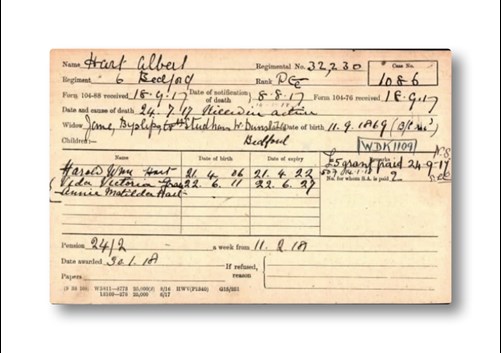 Name Hart Albert Regimental No. 32,230 Case No.
Regiment 6 Bedford Rank Pte 1086
Form 104-88 received 18.9.17 Date of notification of death 8.8.17 Form 104-76 received 18.9.17
Date and cause of death 24.7.17 Killed in action
Widow Jane, Studham Dunstable Date of birth 11.9.1869
Children:— Bedford WDK1109
Name Date of birth Date of expiry
£5 grant paid 24-9-17
Harold Hart 21.4.06 21.4.22 No. for whom S.A. is paid 2
Victoria 22.6.11 22.6.27
Annie Matilda Hart
Pension 24/2 a week from 11.2.18
Date awarded 30.1.18 If refused, reason
Papers